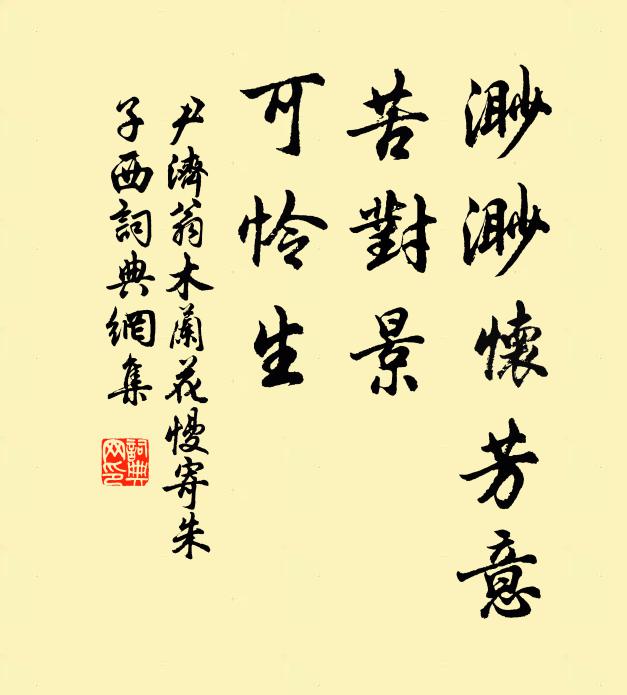 渺渺懷芳意
苦對景
可怜生
尹濟翁木蘭花慢寄朱
子西詞典網集
詞典
网印